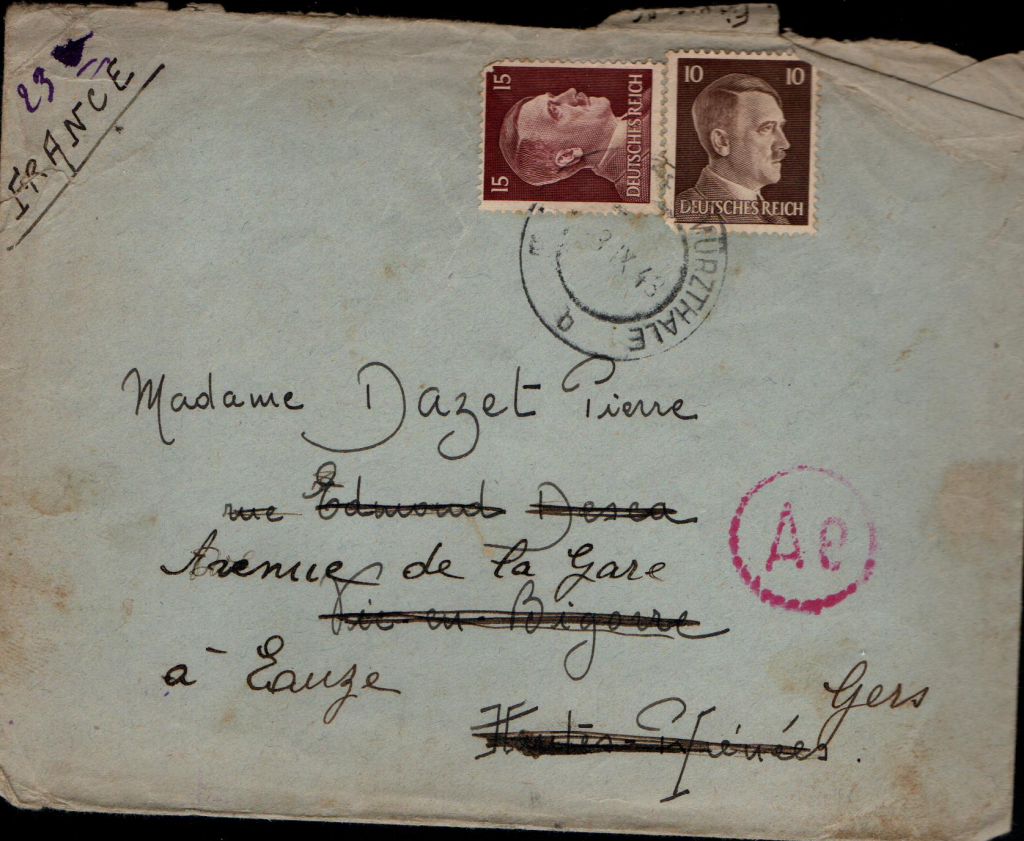 23
FRANCE
15 15
DEUTSCHES REICH
10 10
DEUTSCHES REICH
MÜRZTHALE
IX 43
a
Madame Dazet Pierre
rue Edmond Desca
Avenue de la Gare
Vic-en-Bigorre
à Eauze
Gers
Hautes-Pyrénées.
Ae